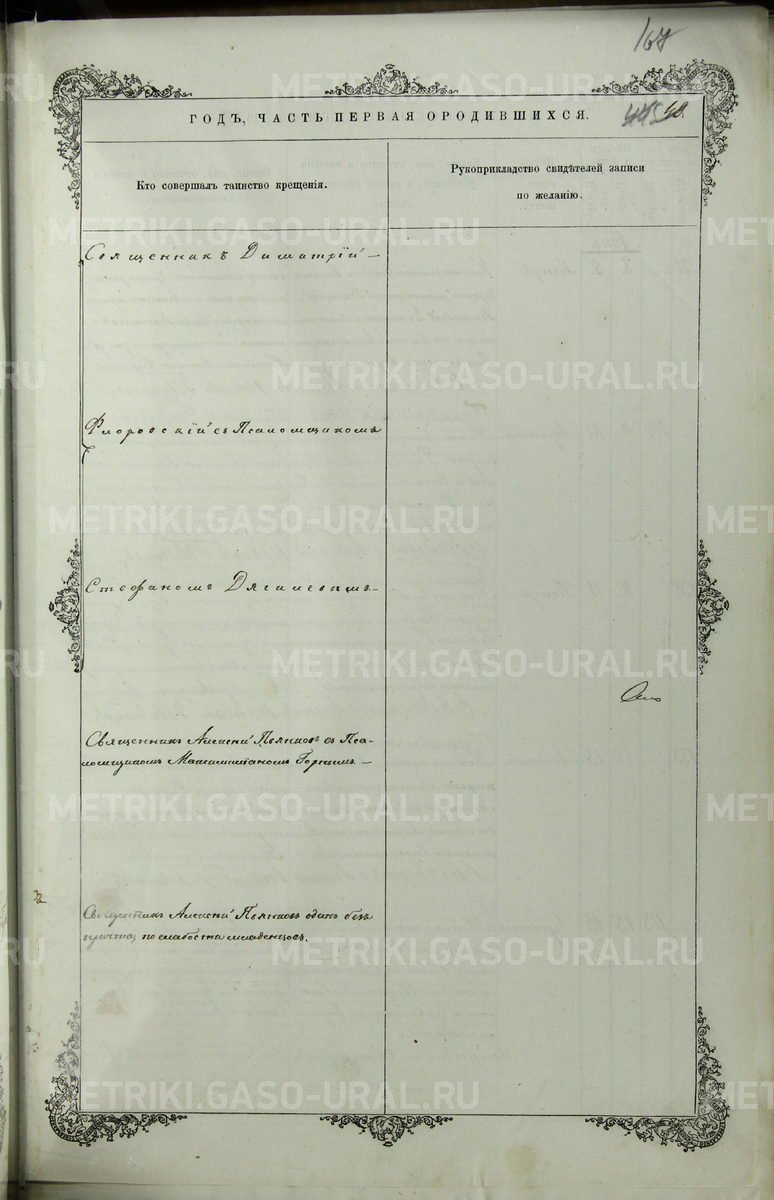 167
48.
ГОДЪ, ЧАСТЬ ПЕРВАЯ О РОДИВШИХСЯ.
Кто совершалъ таинство крещенія.
Рукоприкладство свидѣтелей записи
по желанію.
Священникъ Димитрій
Флоровскій съ Псаломщикомъ
Стефаномъ Дягилевымъ
Священникъ Алексій Пьянковъ съ Пса-
ломщикомъ Максимиліаномъ Горнымъ
Священникъ Алексій Пьянковъ одинъ безъ
причта, по слабости младенцовъ.
METRIKI.GASO-URAL.RU